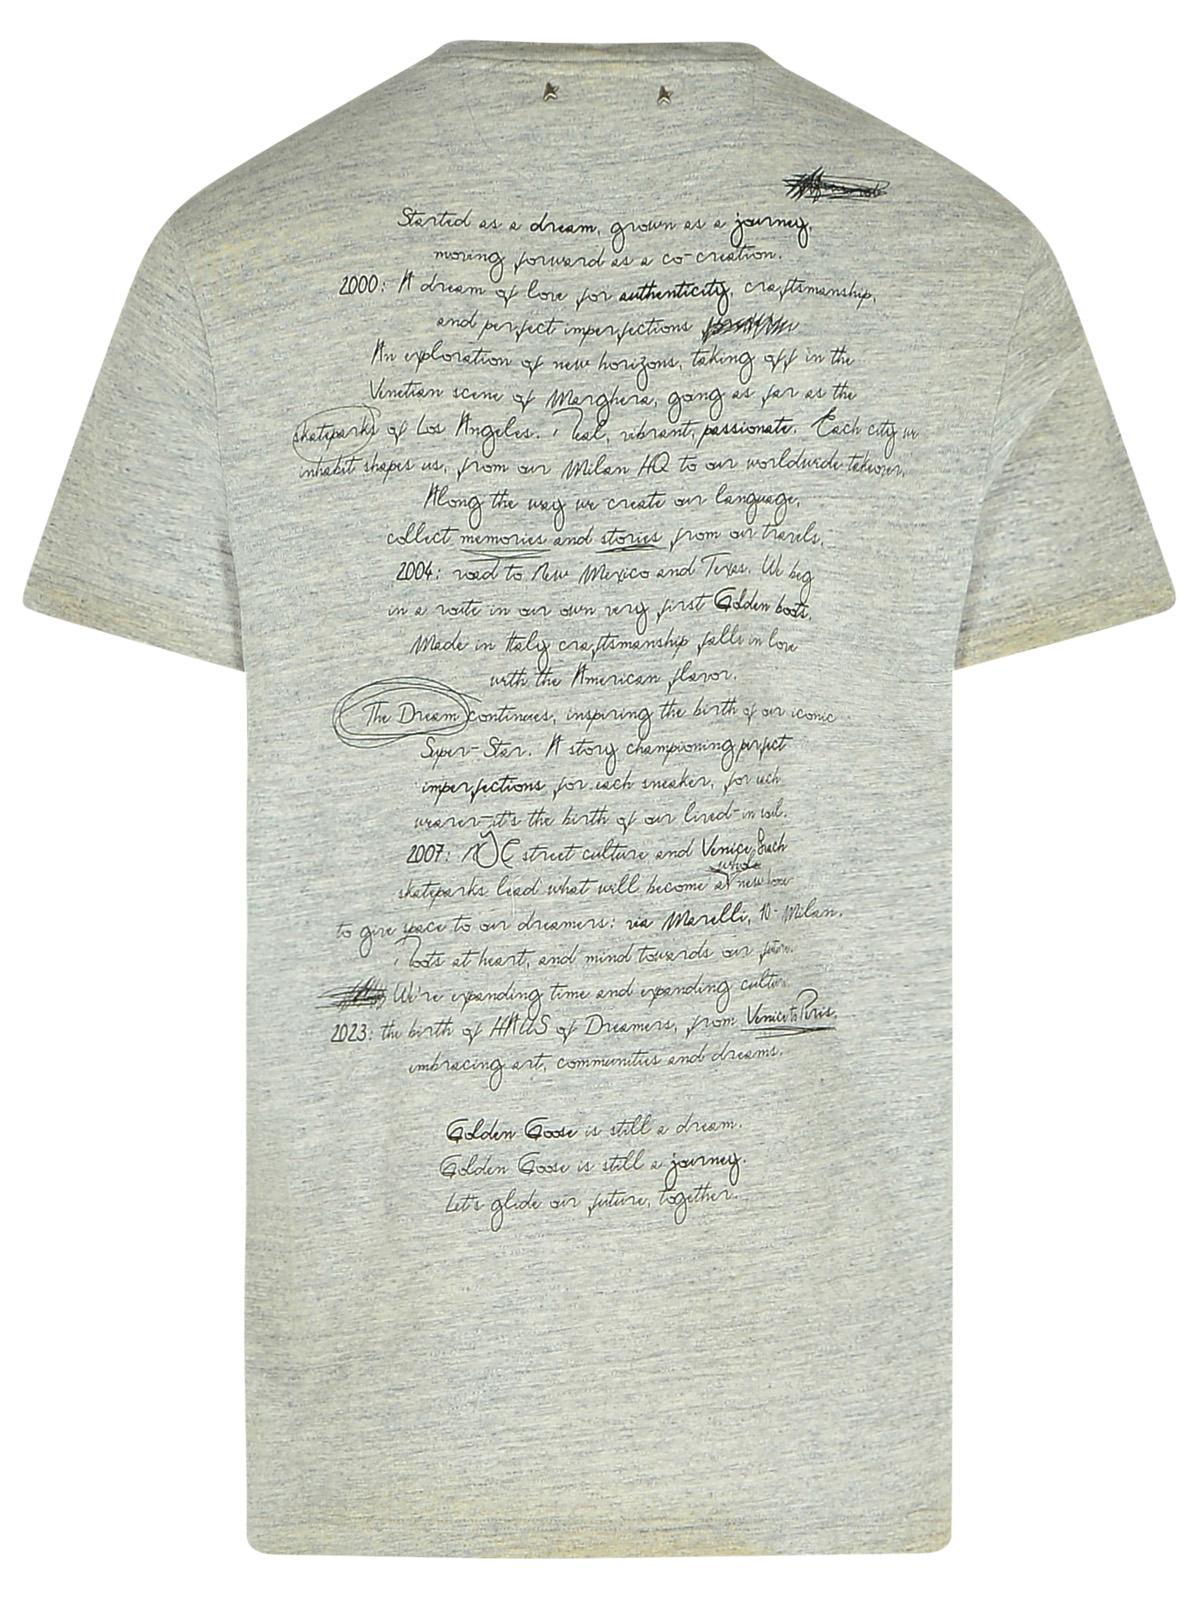 Started as a dream, grown as a journey,
moving forward as a co-creation.
2000: A dream of love for authenticity, craftsmanship,
and perfect imperfections
An exploration of new horizons, taking off in the
Venetian scene of Marghera, going as far as the
skateparks of Los Angeles. Real, vibrant, passionate. Each city we
inhabit shapes us, from our Milan HQ to our worldwide takeover.
Along the way we create our language,
collect memories and stories from our travels.
2004: road to New Mexico and Texas. We beg
in a route in our own very first Golden boots.
Made in Italy craftsmanship falls in love
with the American flavor.
The Dream continues, inspiring the birth of our iconic
Super-Star. A story championing perfect
imperfections for each sneaker, for each
wearer-it's the birth of our lived-in soul.
2007: NYC street culture and Venice Beach
whole
skateparks lead what will become a new
to give space to our dreamers: via Marelli, 10- Milan.
Roots at heart, and mind towards our future.
We're expanding time and expanding culture.
2023: the birth of HAUS of Dreamers, from Venice to Paris,
embracing art, communities and dreams.
Golden Goose is still a dream.
Golden Goose is still a journey.
Let's glide our future, together.